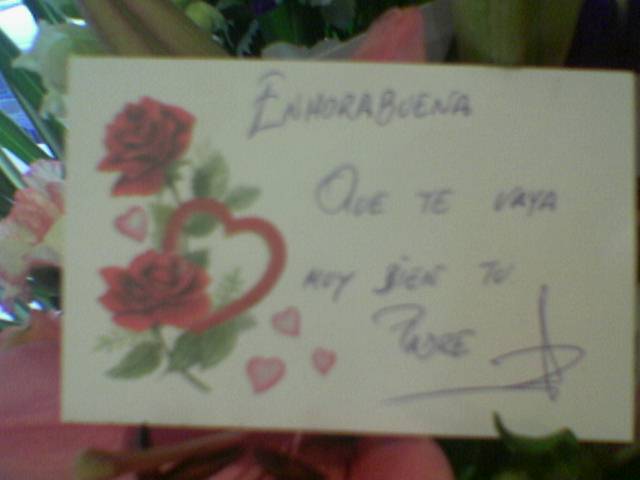 ENHORABUENA
QUE TE VAYA
MUY BIEN TU
PADRE